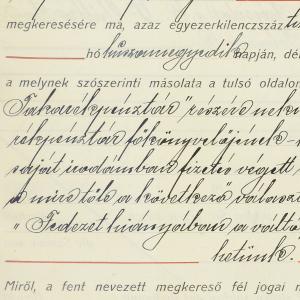 megkeresésére ma, azaz egyezerkilenczszáz
hó huszonnegyedik napján, dé
a melynek szószerinti másolata a tulsó oldalon
Takarékpénztár" részére neki
rékpénztár főkönyvelőjének
saját irodámban fizetés végett
a mire tőle a következő válasz
„Fedezet hiányában a vált
hetünk.
Miről, a fent nevezett megkereső fél jogai